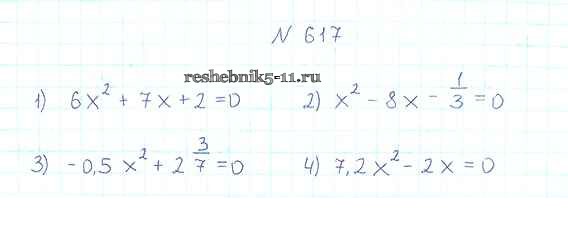 N 617
reshebnik5-11.ru
1) 6x² + 7x + 2 = 0 2) x² - 8x - 1/3 = 0
3) -0,5 x² + 2 3/7 = 0 4) 7,2x² - 2x = 0